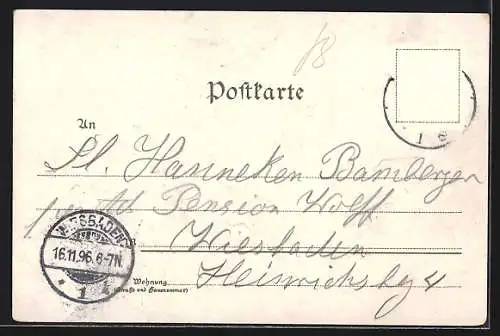 18
Postkarte
1 8
An
Fl. Hanneken Bamberger
per Ad Pension Wolff
Wiesbaden
WIESBADEN
16.11.96. 6-7N.
* 1 *
Wohnung
(Straße und Hausnummer)
Heinrichsbg 4